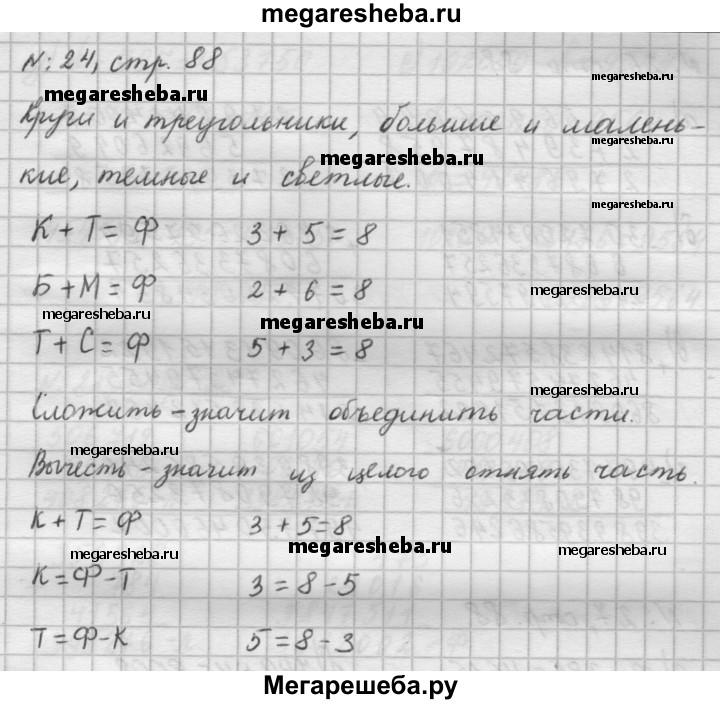 megaresheba.ru
№: 24, стр. 88
megaresheba.ru
megaresheba.ru
Круги и треугольники, большие и малень-
megaresheba.ru
megaresheba.ru
кие, темные и светлые.
megaresheba.ru
К + Т = Ф 3 + 5 = 8
Б + М = Ф 2 + 6 = 8
megaresheba.ru
megaresheba.ru
megaresheba.ru
Т + С = Ф 5 + 3 = 8
megaresheba.ru
Сложить - значит объединить части.
megaresheba.ru
megaresheba.ru
Вычесть - значит из целого отнять часть.
К + Т = Ф 3 + 5 = 8
megaresheba.ru
megaresheba.ru
megaresheba.ru
К = Ф - Т 3 = 8 - 5
Т = Ф - К 5 = 8 - 3
Мегарешеба.ру